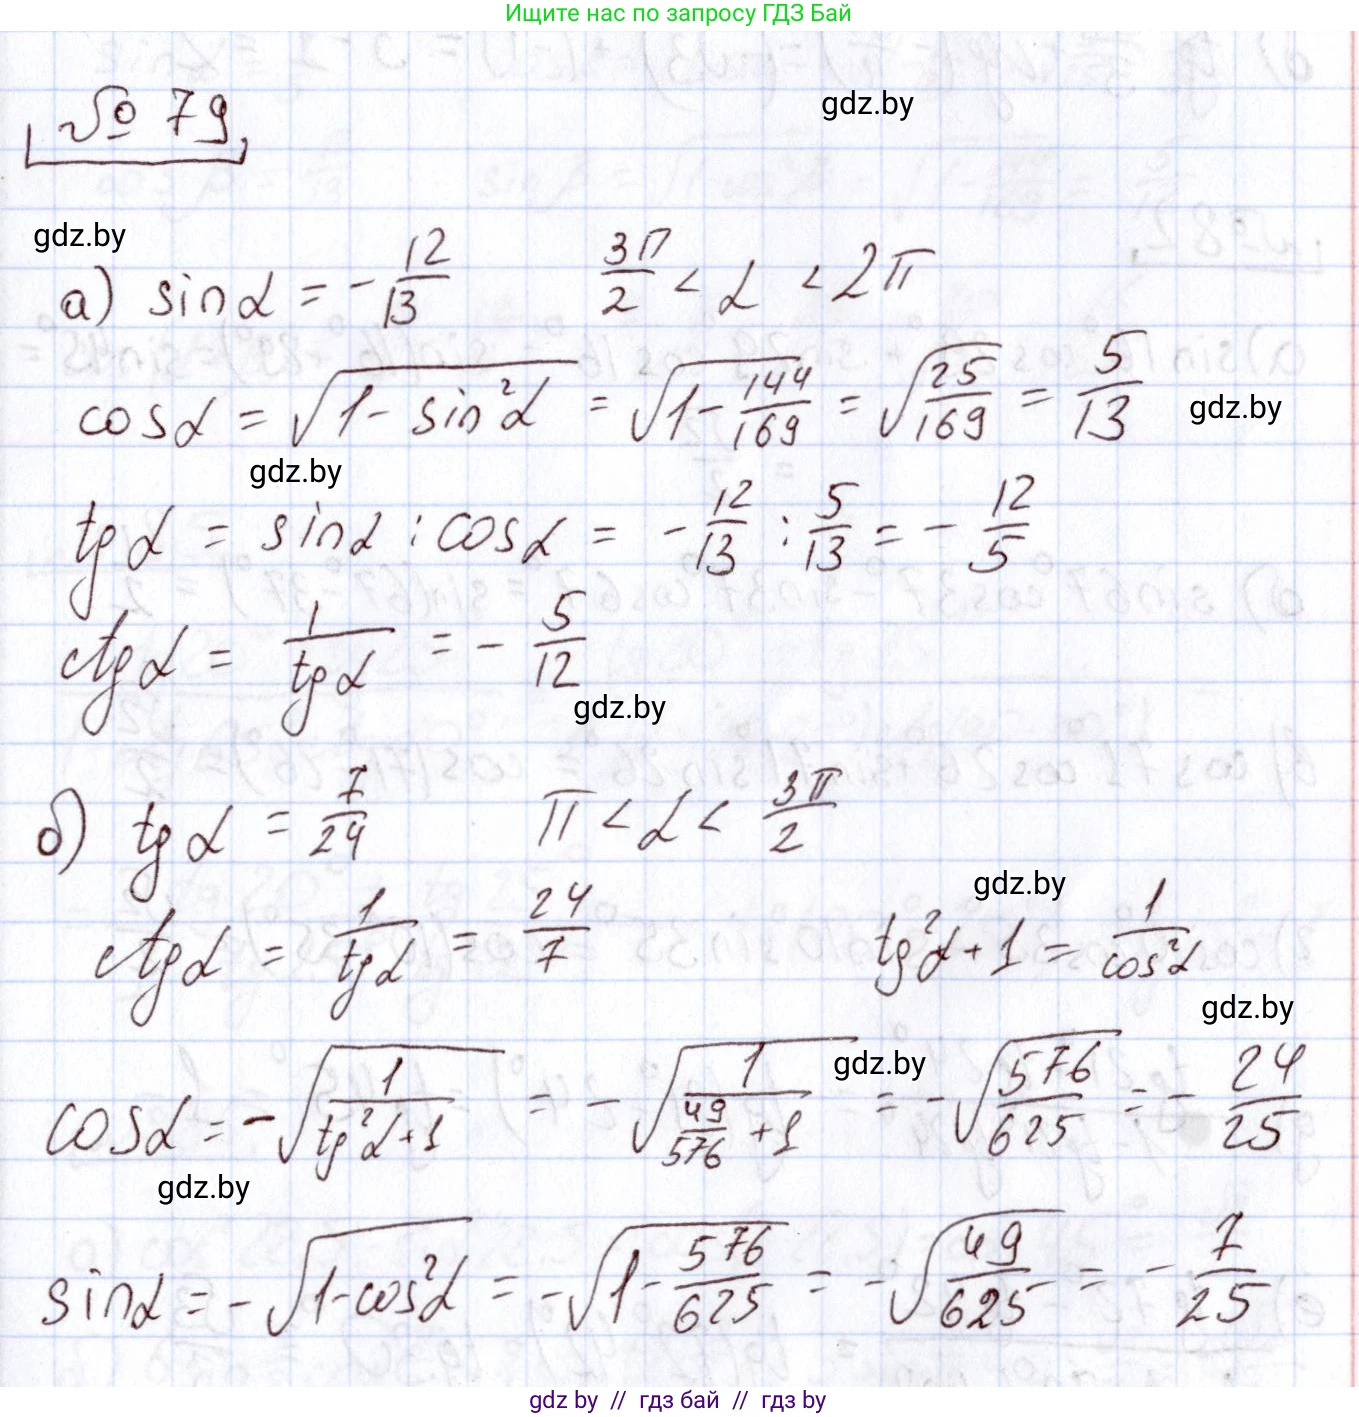 Ищите нас по запросу ГДЗ Бай
№ 79
gdz.by
gdz.by
а) sin α = - 12/13   3П/2 < α < 2π
cos α = √(1 - sin²α) = √(1 - 144/169) = √(25/169) = 5/13
gdz.by
gdz.by
tg α = sin α : cos α = - 12/13 : 5/13 = - 12/5
ctg α = 1/tg α = - 5/12
gdz.by
б) tg α = 7/24   π < α < 3π/2
gdz.by
ctg α = 1/tg α = 24/7   tg²α + 1 = 1/cos²α
gdz.by
gdz.by
cos α = - √(1/(tg²α + 1)) = - √(1/(49/576 + 1)) = - √(576/625) = - 24/25
gdz.by
sin α = - √(1 - cos²α) = - √(1 - 576/625) = - √(49/625) = - 7/25
gdz by // гдз бай // гдз by